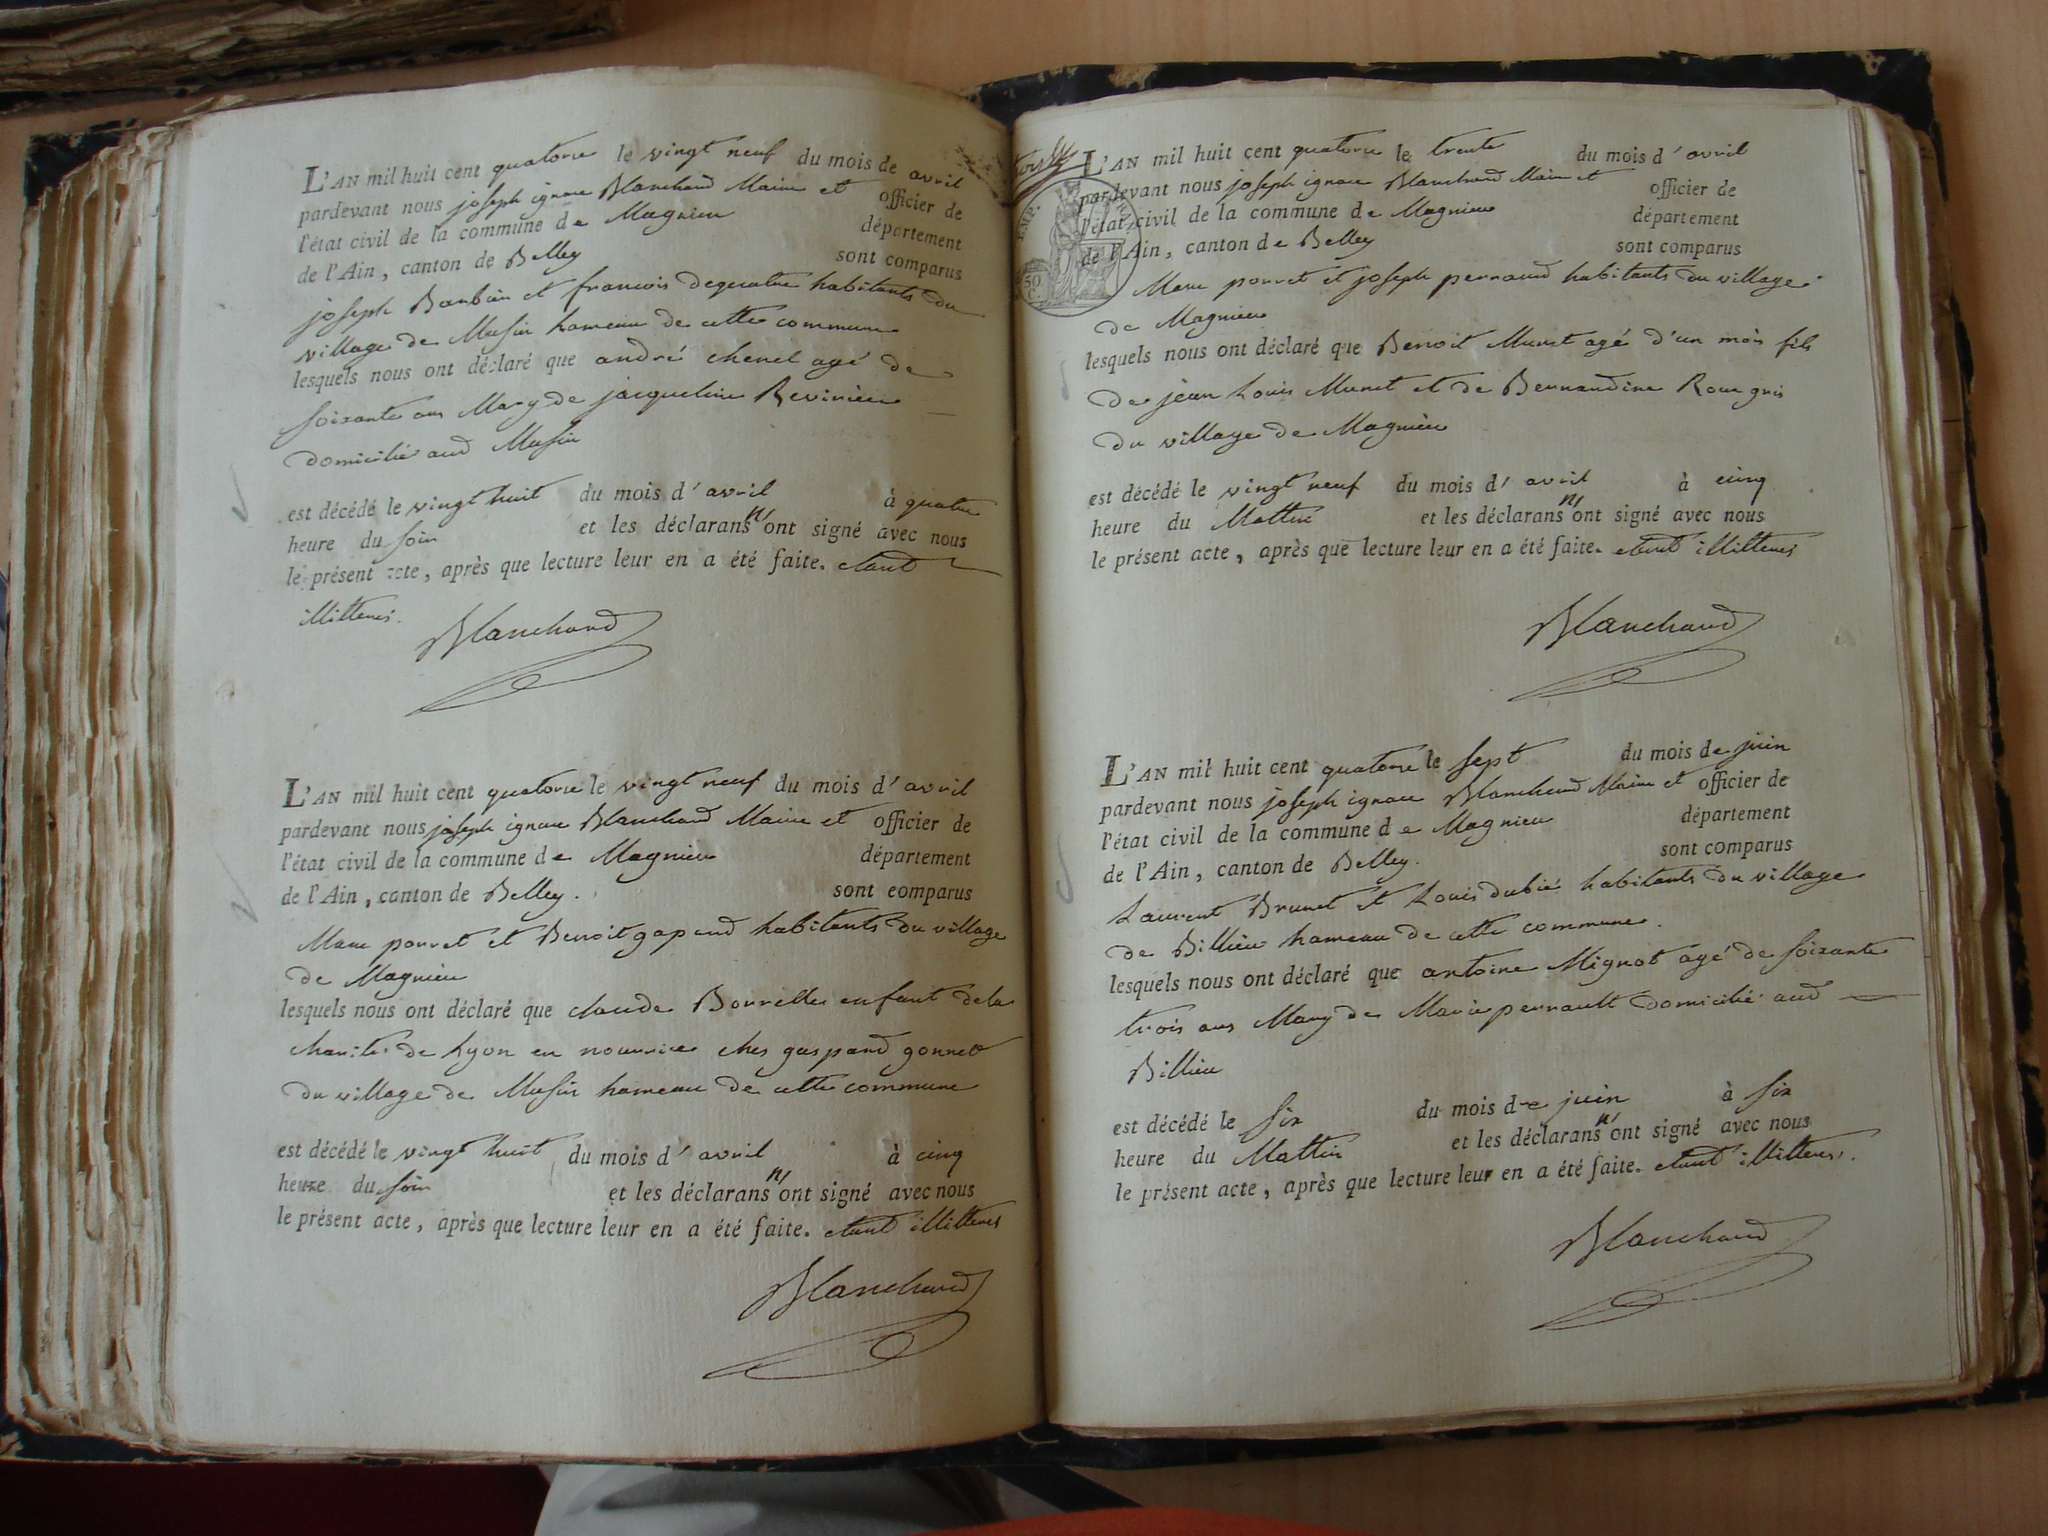 L'AN mil huit cent quatorze le vingt neuf du mois de avril
pardevant nous joseph ignace Blanchard Maire et officier de
l'état civil de la commune de Magnieu département
de l'Ain, canton de Belley sont comparus
joseph Barbier et francois degeratue habitants du
village de Musin hameau de cette commune
lesquels nous ont déclaré que andré chenel agé de
soixante ans Mary de jacqueline Revirieu
domicilié aud Musin
est décédé le vingt huit du mois d'avril à quatre
heure du soir et les déclarans n'ont signé avec nous
le présent acte, après que lecture leur en a été faite. etant
illitterés.
Blanchard
L'AN mil huit cent quatorze le vingt neuf du mois d'avril
pardevant nous joseph ignace Blanchard Maire et officier de
l'état civil de la commune de Magnieu département
de l'Ain, canton de Belley. sont comparus
Marc porret et Benoit gapand habitants du village
de Magnieu
lesquels nous ont déclaré que claude Bourelle enfant dela
charité de Lyon en nourrice ches gaspard gonnet
du village de Musin hameau de cette commune
est décédé le vingt huit du mois d'avril à cinq
heure du soir et les déclarans n'ont signé avec nous
le présent acte, après que lecture leur en a été faite. etant illitterés
Blanchard
L'AN mil huit cent quatorze le trente du mois d'avril
pardevant nous joseph ignace Blanchard Maire et officier de
l'état civil de la commune de Magnieu département
de l'Ain, canton de Belley sont comparus
Marc porret et joseph pernaud habitants du village
de Magnieu
lesquels nous ont déclaré que Benoit Munet agé d'un mois fils
de jean Louis Munet et de Bernardine Rougris
du village de Magnieu
est décédé le vingt neuf du mois d'avril à cinq
heure du Mattin et les déclarans n'ont signé avec nous
le présent acte, après que lecture leur en a été faite. etant illitterés
Blanchard
L'AN mil huit cent quatorze le sept du mois de juin
pardevant nous joseph ignace Blanchard Maire et officier de
l'état civil de la commune de Magnieu département
de l'Ain, canton de Belley. sont comparus
Laurent Brunet et Louis dubié habitants du village
de Billieu hameau de cette commune.
lesquels nous ont déclaré que antoine Mignot agé de soixante
trois ans Mary de Marie pernault domicilié aud
Billieu
est décédé le six du mois de juin à six
heure du Mattin et les déclarans n'ont signé avec nous
le présent acte, après que lecture leur en a été faite. etant illitterés.
Blanchard